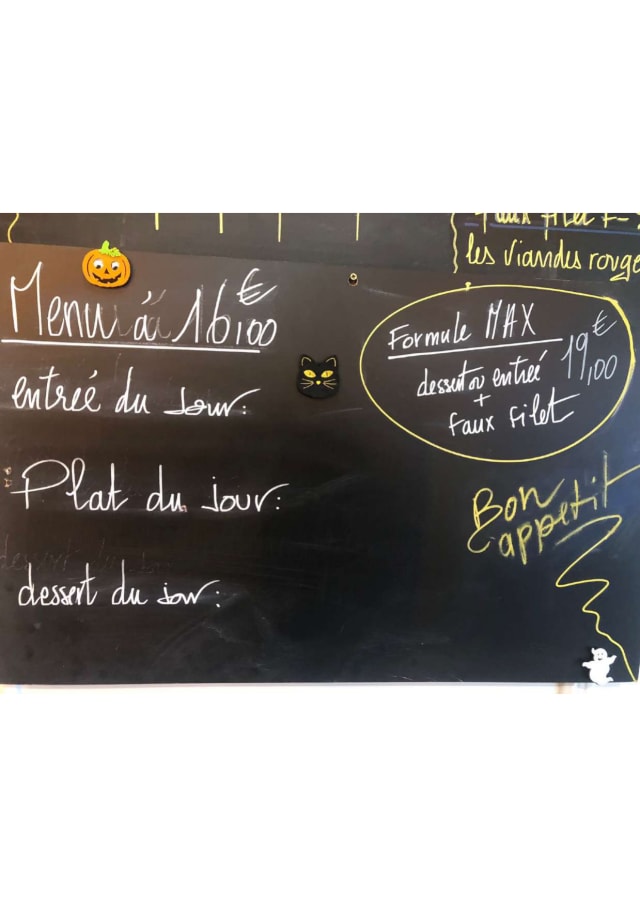 les viandes rouge
Menu à 16,00€
entrée du jour:
Plat du jour:
dessert du jour:
Formule MAX
dessert ou entrée
+
faux filet
19,00€
Bon
appetit